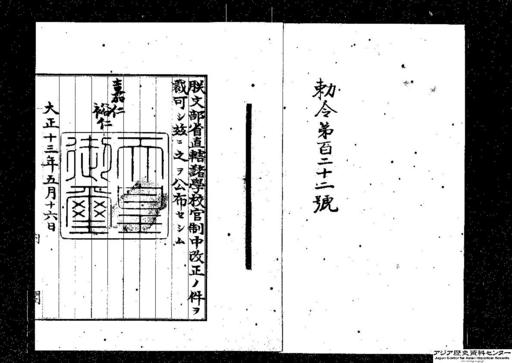 勅令第百二十二號
朕文部省直轄諸學校官制中改正ノ件ヲ
裁可シ玆ニ之ヲ公布セシム
嘉仁
裕仁
天皇
御璽
大正十三年五月十六日
アジア歴史資料センター
Japan Center for Asian Historical Records